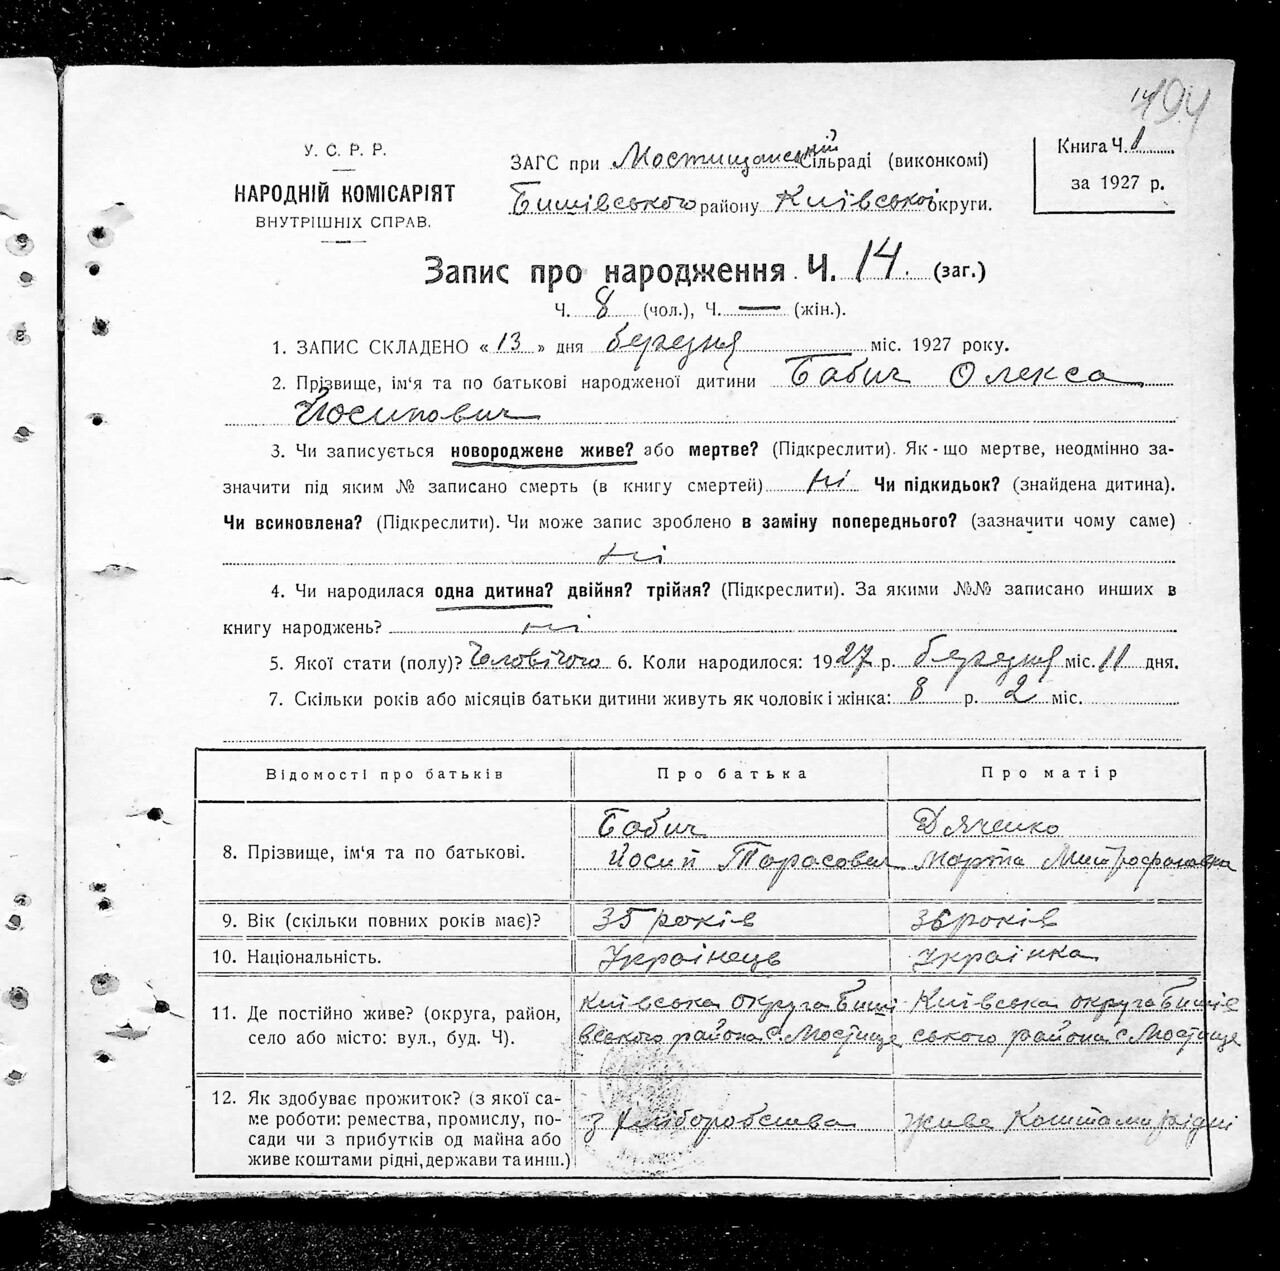 194
У. С. Р. Р.
НАРОДНІЙ КОМІСАРІЯТ
ВНУТРІШНІХ СПРАВ.
ЗАГС при Мостищанській сільраді (виконкомі)
Бишівського району Київської округи.
Книга Ч. 1
за 1927 р.
Запис про народження Ч. 14. (заг.)
Ч. 8 (чол.), Ч. — (жін.).
1. ЗАПИС СКЛАДЕНО « 13 » дня березня міс. 1927 року.
2. Прізвище, ім'я та по батькові народженої дитини Бабич Олекса
Йосипович
3. Чи записується новороджене живе? або мертве? (Підкреслити). Як-що мертве, неодмінно за-
значити під яким № записано смерть (в книгу смертей) ні Чи підкидьок? (знайдена дитина).
Чи всиновлена? (Підкреслити). Чи може запис зроблено в заміну попереднього? (зазначити чому саме)
ні
4. Чи народилася одна дитина? двійня? трійня? (Підкреслити). За якими №№ записано инших в
книгу народжень? ні
5. Якої стати (полу)? Чоловічого 6. Коли народилося: 1927 р. березня міс. 11 дня.
7. Скільки років або місяців батьки дитини живуть як чоловік і жінка: 8 р. 2 міс.
Відомості про батьків Про батька Про матір
8. Прізвище, ім'я та по батькові.
Бабич
Йосип Тарасович
Дяченко
Марта Митрофановна
9. Вік (скільки повних років має)? 35 років 36 років
10. Національність. Українець Украінка
11. Де постійно живе? (округа, район,
село або місто: вул., буд. Ч).
Київська округа Биші
вського района с. Мостище
Київська округа Бишів
ського района с. Мостище
12. Як здобуває прожиток? (з якої са-
ме роботи: ремества, промислу, по-
сади чи з прибутків од майна або
живе коштами рідні, держави та инш.)
з хліборобства
живе коштами рідні